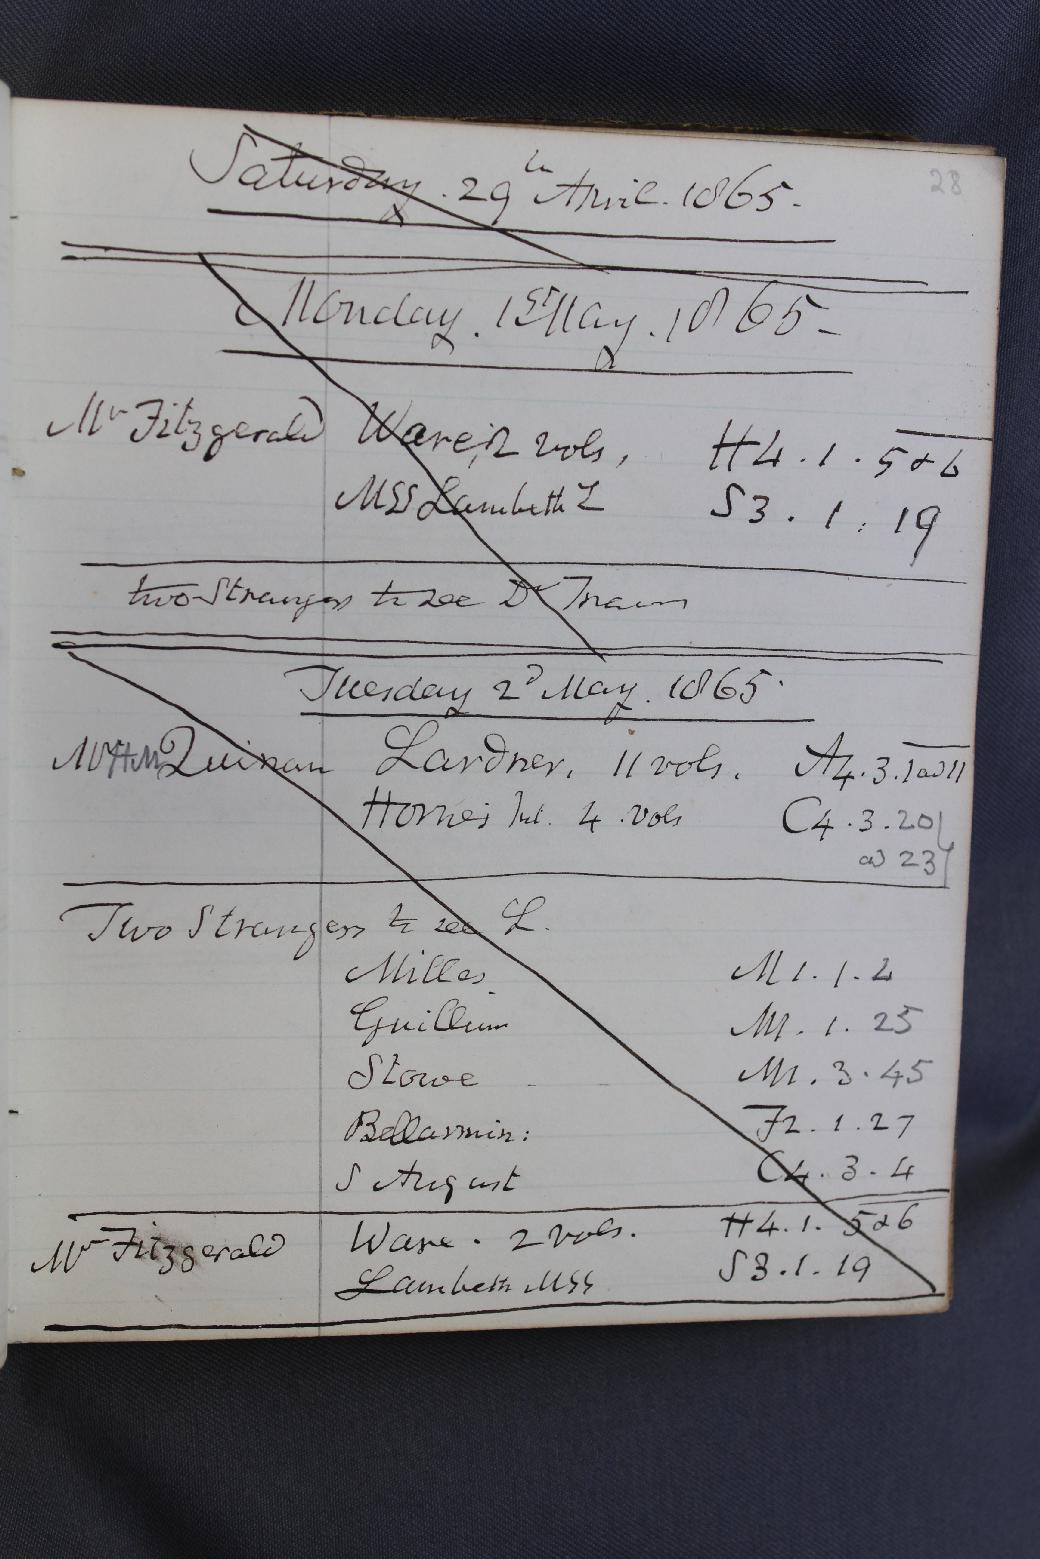 28
Saturday. 29th April. 1865.
Monday. 1st May. 1865
Mr Fitzgerald Ware, 2 vols, H4.1.5&6
MSS Lambeth L S3.1.19
two Strangers to see Dr
Tuesday 2d May. 1865
Mr H M Quinan Lardner, 11 vols. A4.3.1 ad 11
Horne's 4 vols C4.3.20
ad 23
Two Strangers to see L.
Milles M1.1.2
Guillium M1.1.25
Stowe M1.3.45
Bellarmin: F2.1.27
S August C4.3.4
Mr Fitzgerald Ware. 2 vols. H4.1.5&6
Lambeth MSS S3.1.19